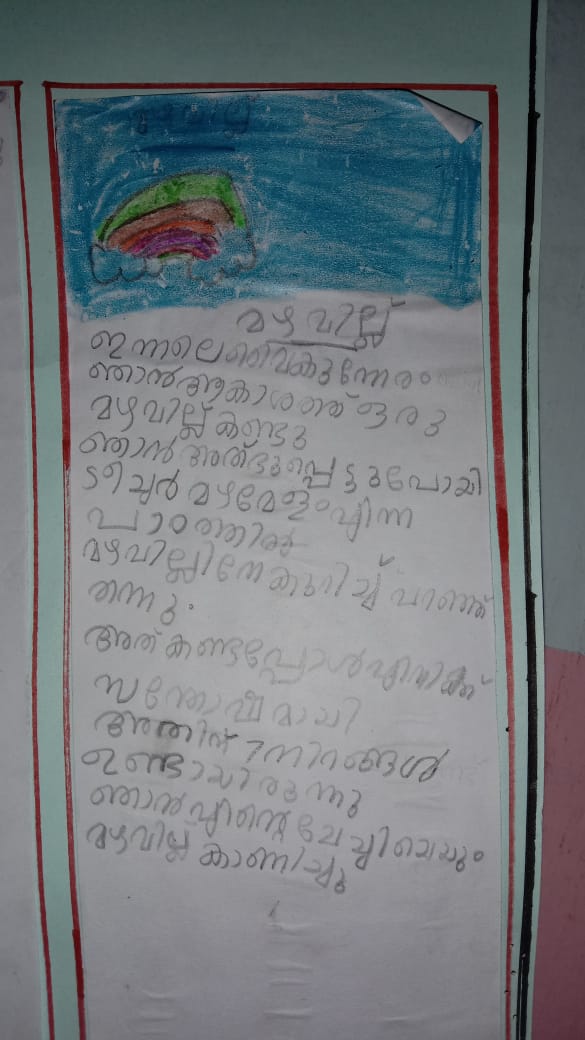 മഴവില്ല്
ഇന്നലെ വൈകുന്നേരം
ഞാൻ ആകാശത്ത് ഒരു
മഴവില്ല് കണ്ടു
ഞാൻ അത്ഭുപ്പെട്ടുപോയി
ടീച്ചർ മഴമേളം എന്ന
പാഠത്തിൽ
മഴവില്ലിനേകുറിച്ച് പറഞ്ഞ്
തന്നു.
അത് കണ്ടപ്പോൾ എനിക്ക്
സന്തോഷമായി
അതിന് 7 നിറങ്ങൾ
ഉണ്ടായിരുന്നു
ഞാൻ എന്റെ ചേച്ചിയെയും
മഴവില്ല് കാണിച്ചു